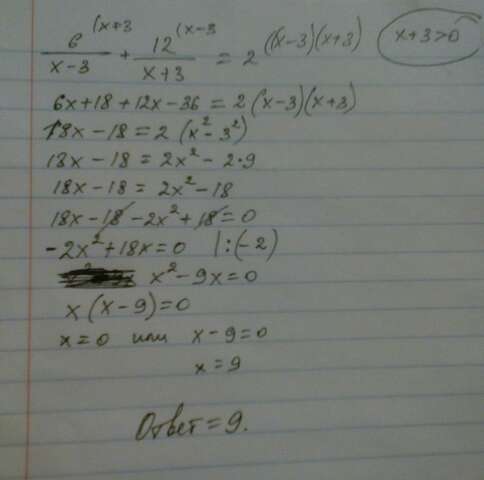 6^(x+3 / x-3 + 12^(x-3 / x+3 = 2^(x-3)(x+3) x+3>0
6x+18+12x-36=2(x-3)(x+3)
18x-18=2(x²-3²)
18x-18=2x²-2·9
18x-18=2x²-18
18x-18-2x²+18=0
-2x²+18x=0 |:(-2)
x²-9x=0
x(x-9)=0
x=0 или x-9=0
x=9
Ответ=9.